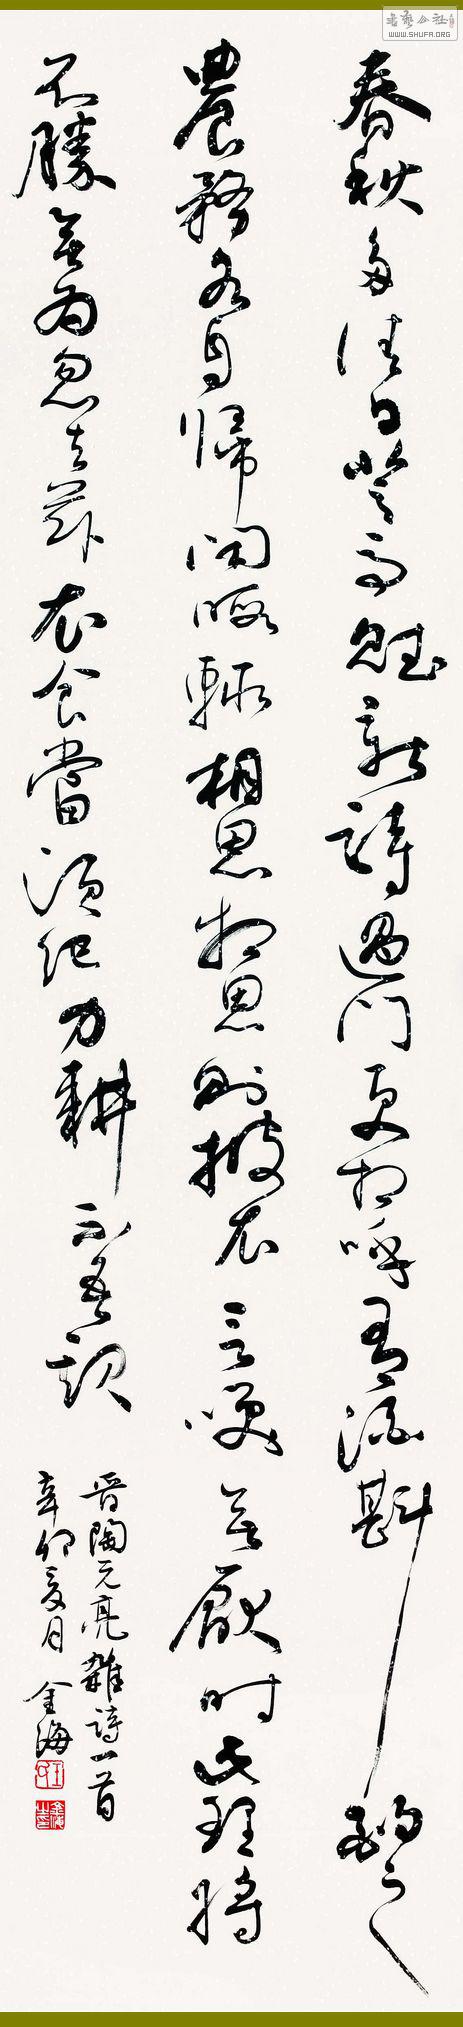 書藝公社
WWW.SHUFA.ORG
春秋多佳日登高賦新詩過門更相呼有酒斟酌之
農務各自歸閑暇輒相思相思則披衣言咲無厭時此理將
不勝無為忽去茲衣食當須紀力耕不吾欺
晉陶元亮雜詩一首
辛卯夏月金海